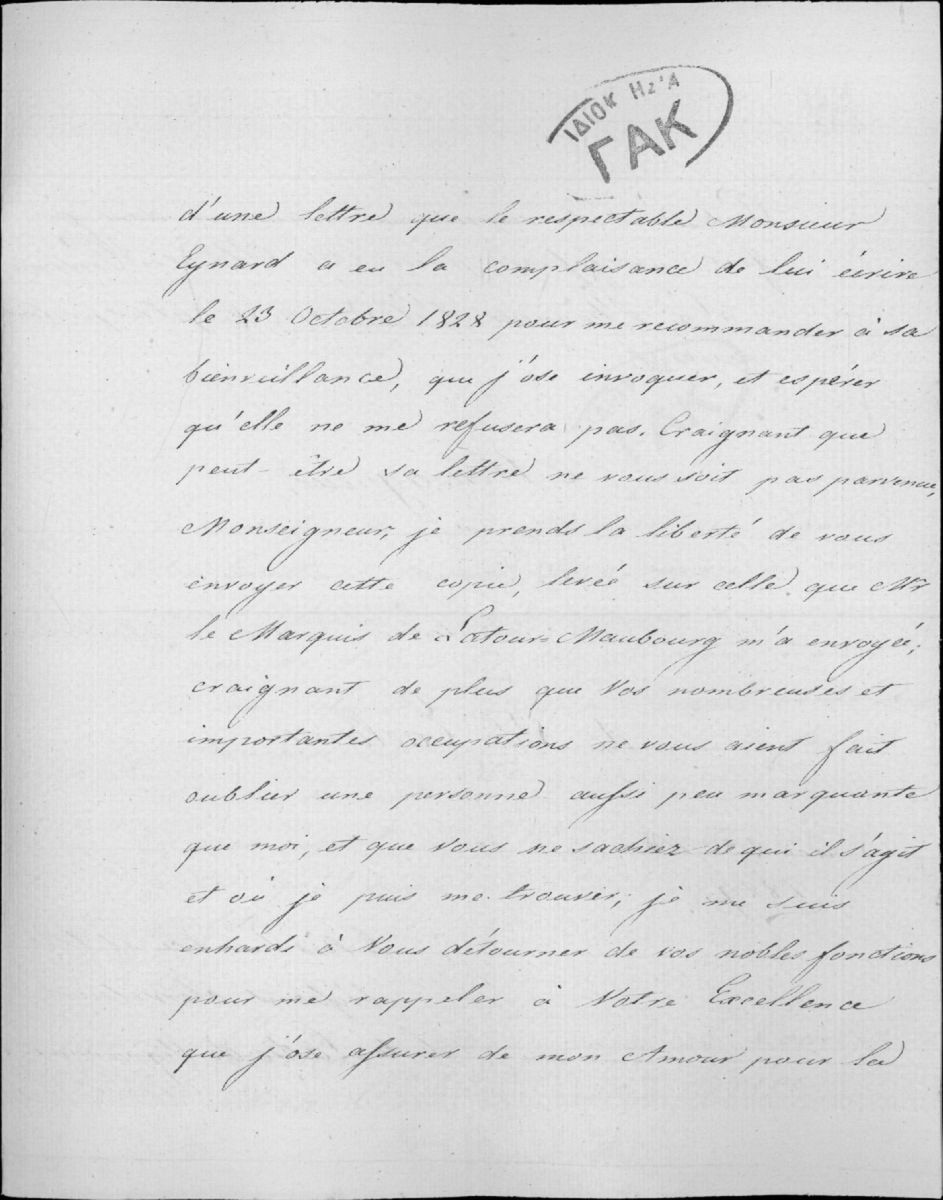 ΙΔΙΟΚ ΗΖ'Α
ΓΑΚ
d'une lettre que le respectable Monsieur
Eynard a eu la complaisance de lui écrire
le 23 Octobre 1828 pour me recommander à sa
bienveillance, que j'ose invoquer, et espérer
qu'elle ne me refusera pas. Craignant que
peut-être sa lettre ne vous soit pas parvenue,
Monseigneur, je prends la liberté de vous
envoyer cette copie, levée sur celle que Mr
le Marquis de Latour-Maubourg m'a envoyée;
craignant de plus que Vos nombreuses et
importantes occupations ne vous aient fait
oublier une personne aussi peu marquante
que moi, et que Vous ne sachiez de qui il s'agit
et où je puis me trouver; je me suis
enhardi à Vous détourner de vos nobles fonctions
pour me rappeler à Votre Excellence
que j'ose assurer de mon Amour pour la